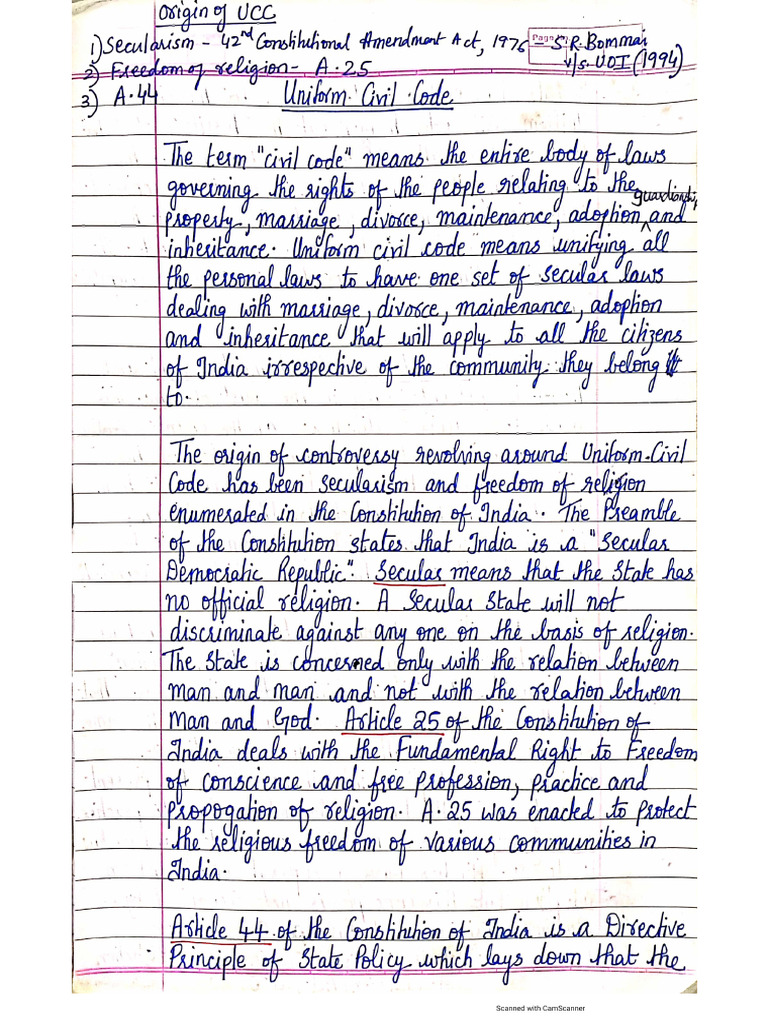 Origin of UCC
1) Secularism - 42nd Constitutional Amendment Act, 1976 - S.R. Bommai
2) Freedom of religion - A.25 v/s. UOI (1994)
3) A.44 Uniform Civil Code
The term "civil code" means the entire body of laws
governing the rights of the people relating to the
property, marriage, divorce, maintenance, adoption, guardianship and
inheritance. Uniform civil code means unifying all
the personal laws to have one set of secular laws
dealing with marriage, divorce, maintenance, adoption
and inheritance that will apply to all the citizens
of India irrespective of the community they belong
to.
The origin of controversy revolving around Uniform Civil
Code has been secularism and freedom of religion
enumerated in the Constitution of India. The Preamble
of the Constitution states that India is a "Secular
Democratic Republic". Secular means that the State has
no official religion. A Secular State will not
discriminate against any one on the basis of religion.
The State is concerned only with the relation between
man and man and not with the relation between
Man and God. Article 25 of the Constitution of
India deals with the Fundamental Right to Freedom
of conscience and free profession, practice and
propogation of religion. A.25 was enacted to protect
the religious freedom of various communities in
India.
Article 44 of the Constitution of India is a Directive
Principle of State Policy which lays down that the
Scanned with CamScanner